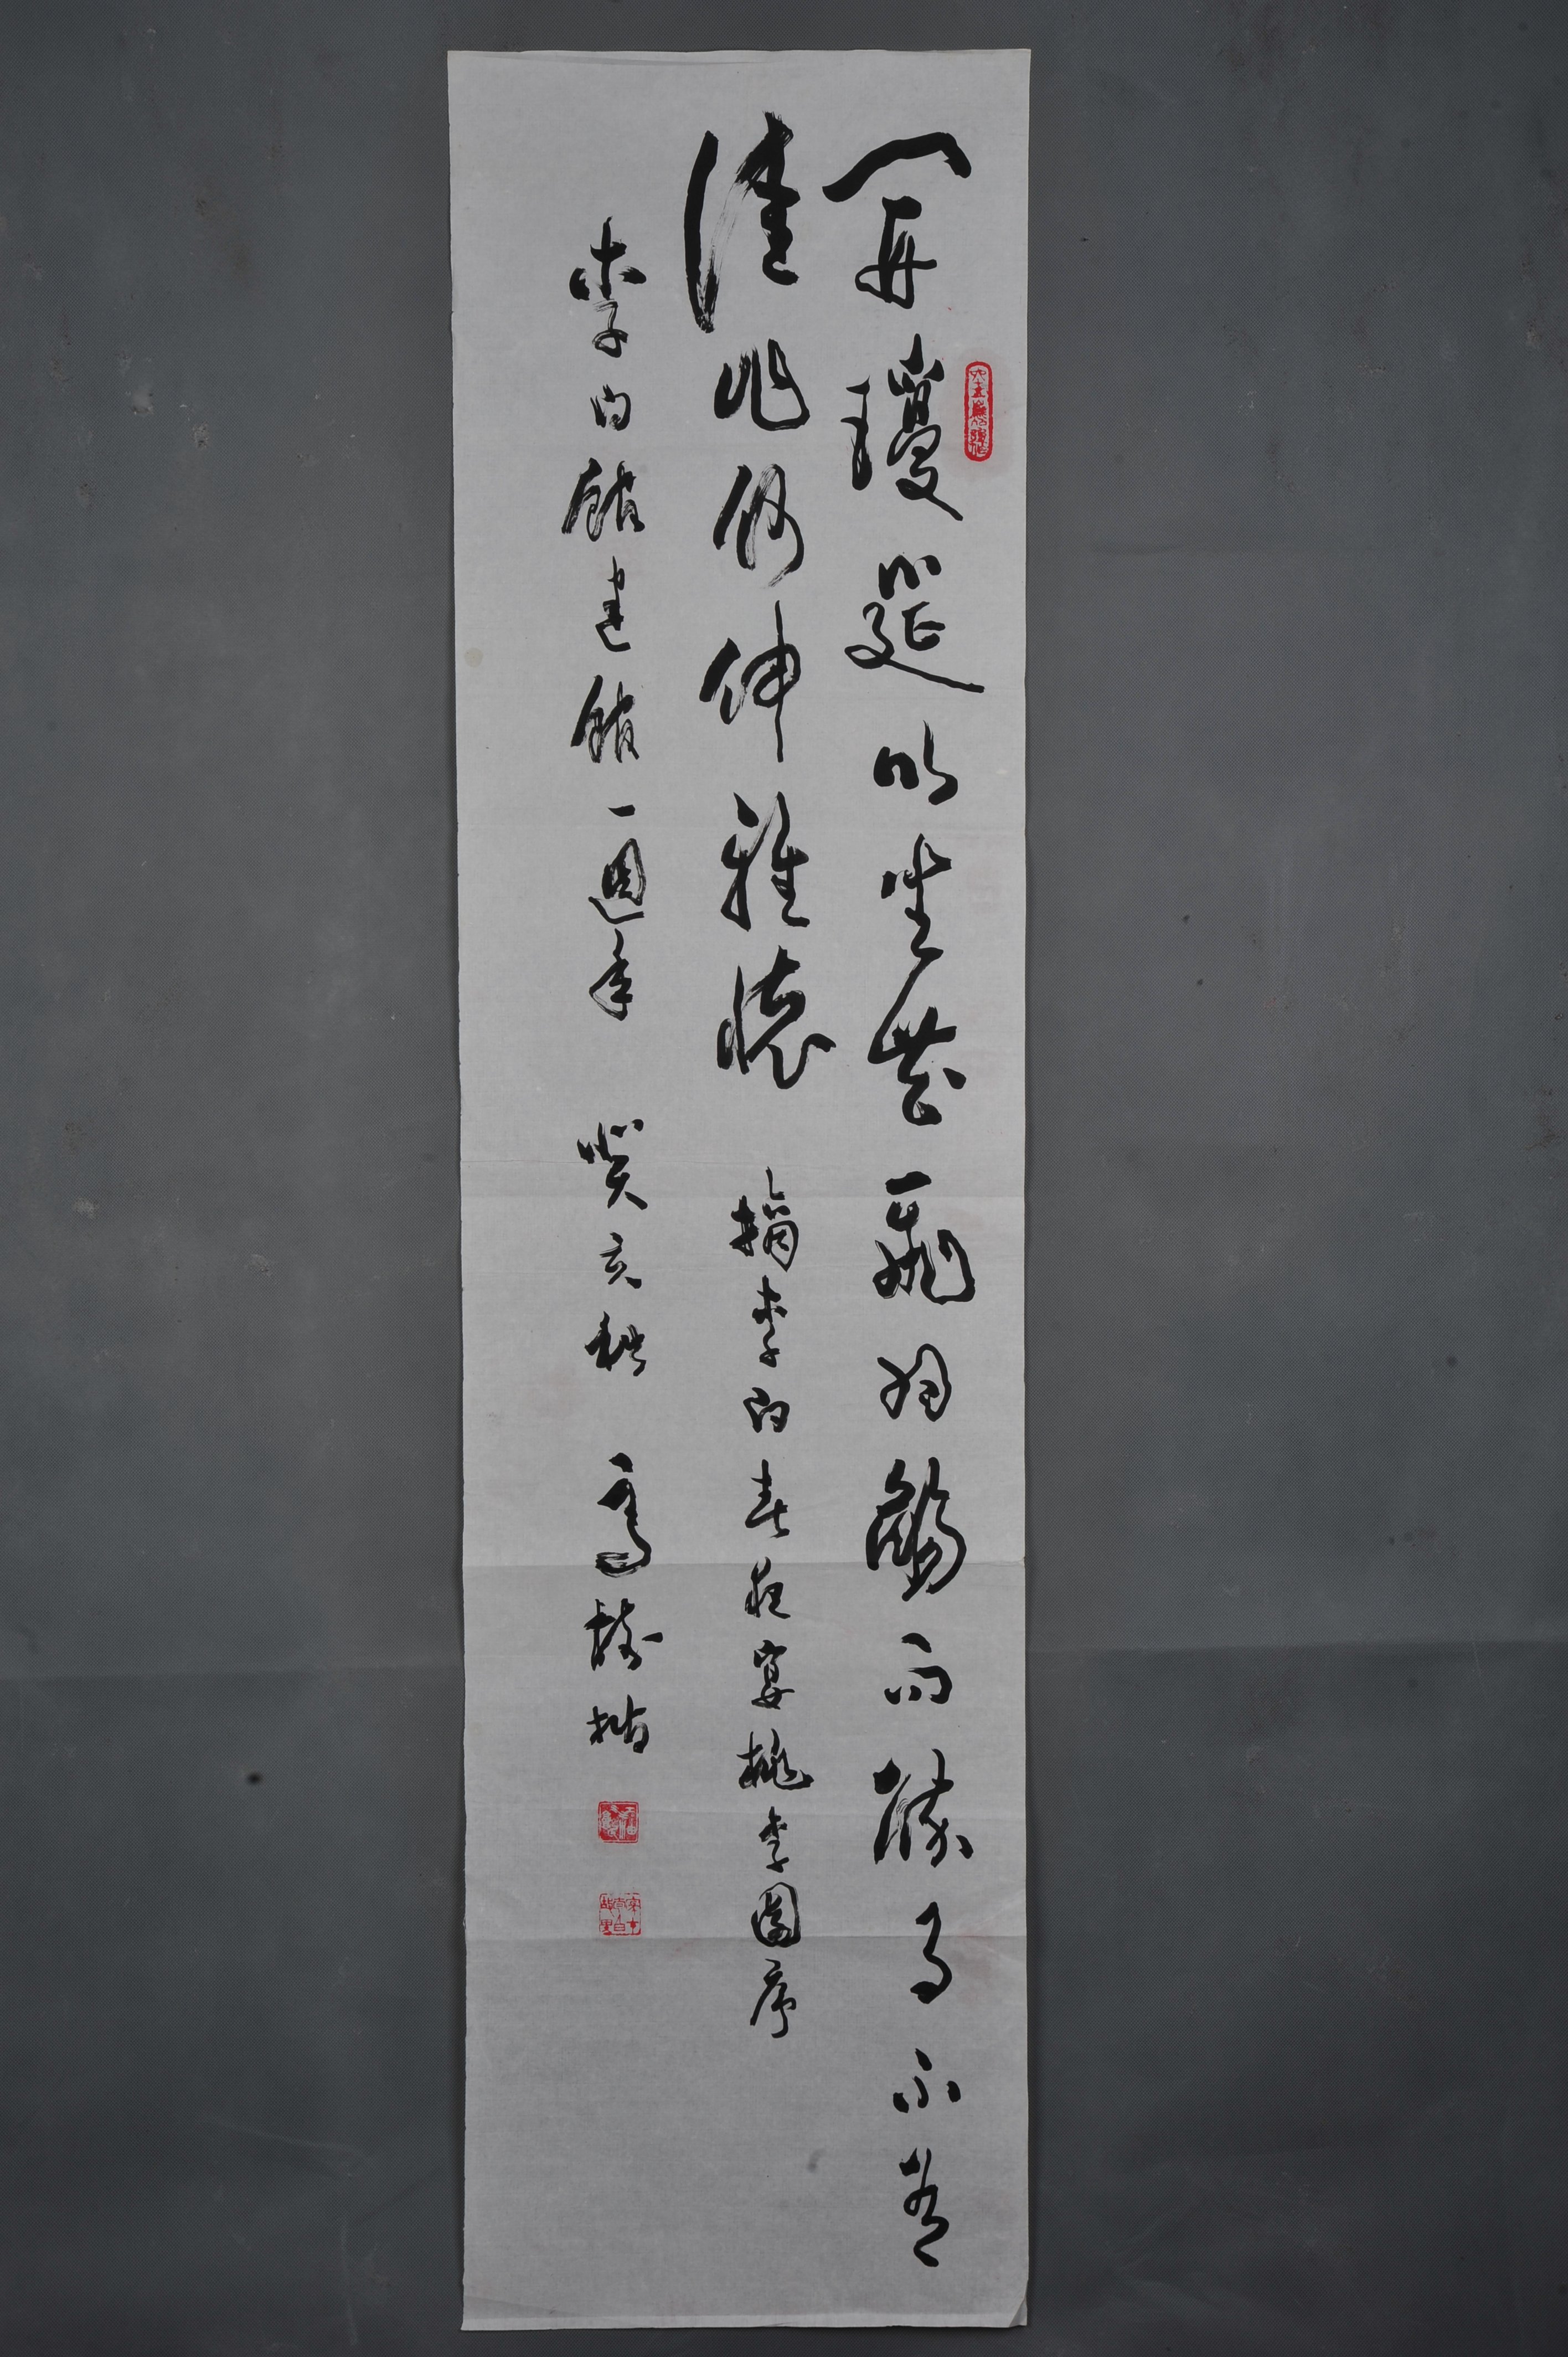 開瓊筵以坐花飛羽觴而醉月不有
佳作何伸雅懷 摘李白春夜宴桃李園序
李白館建館一週年 癸亥秋 馬